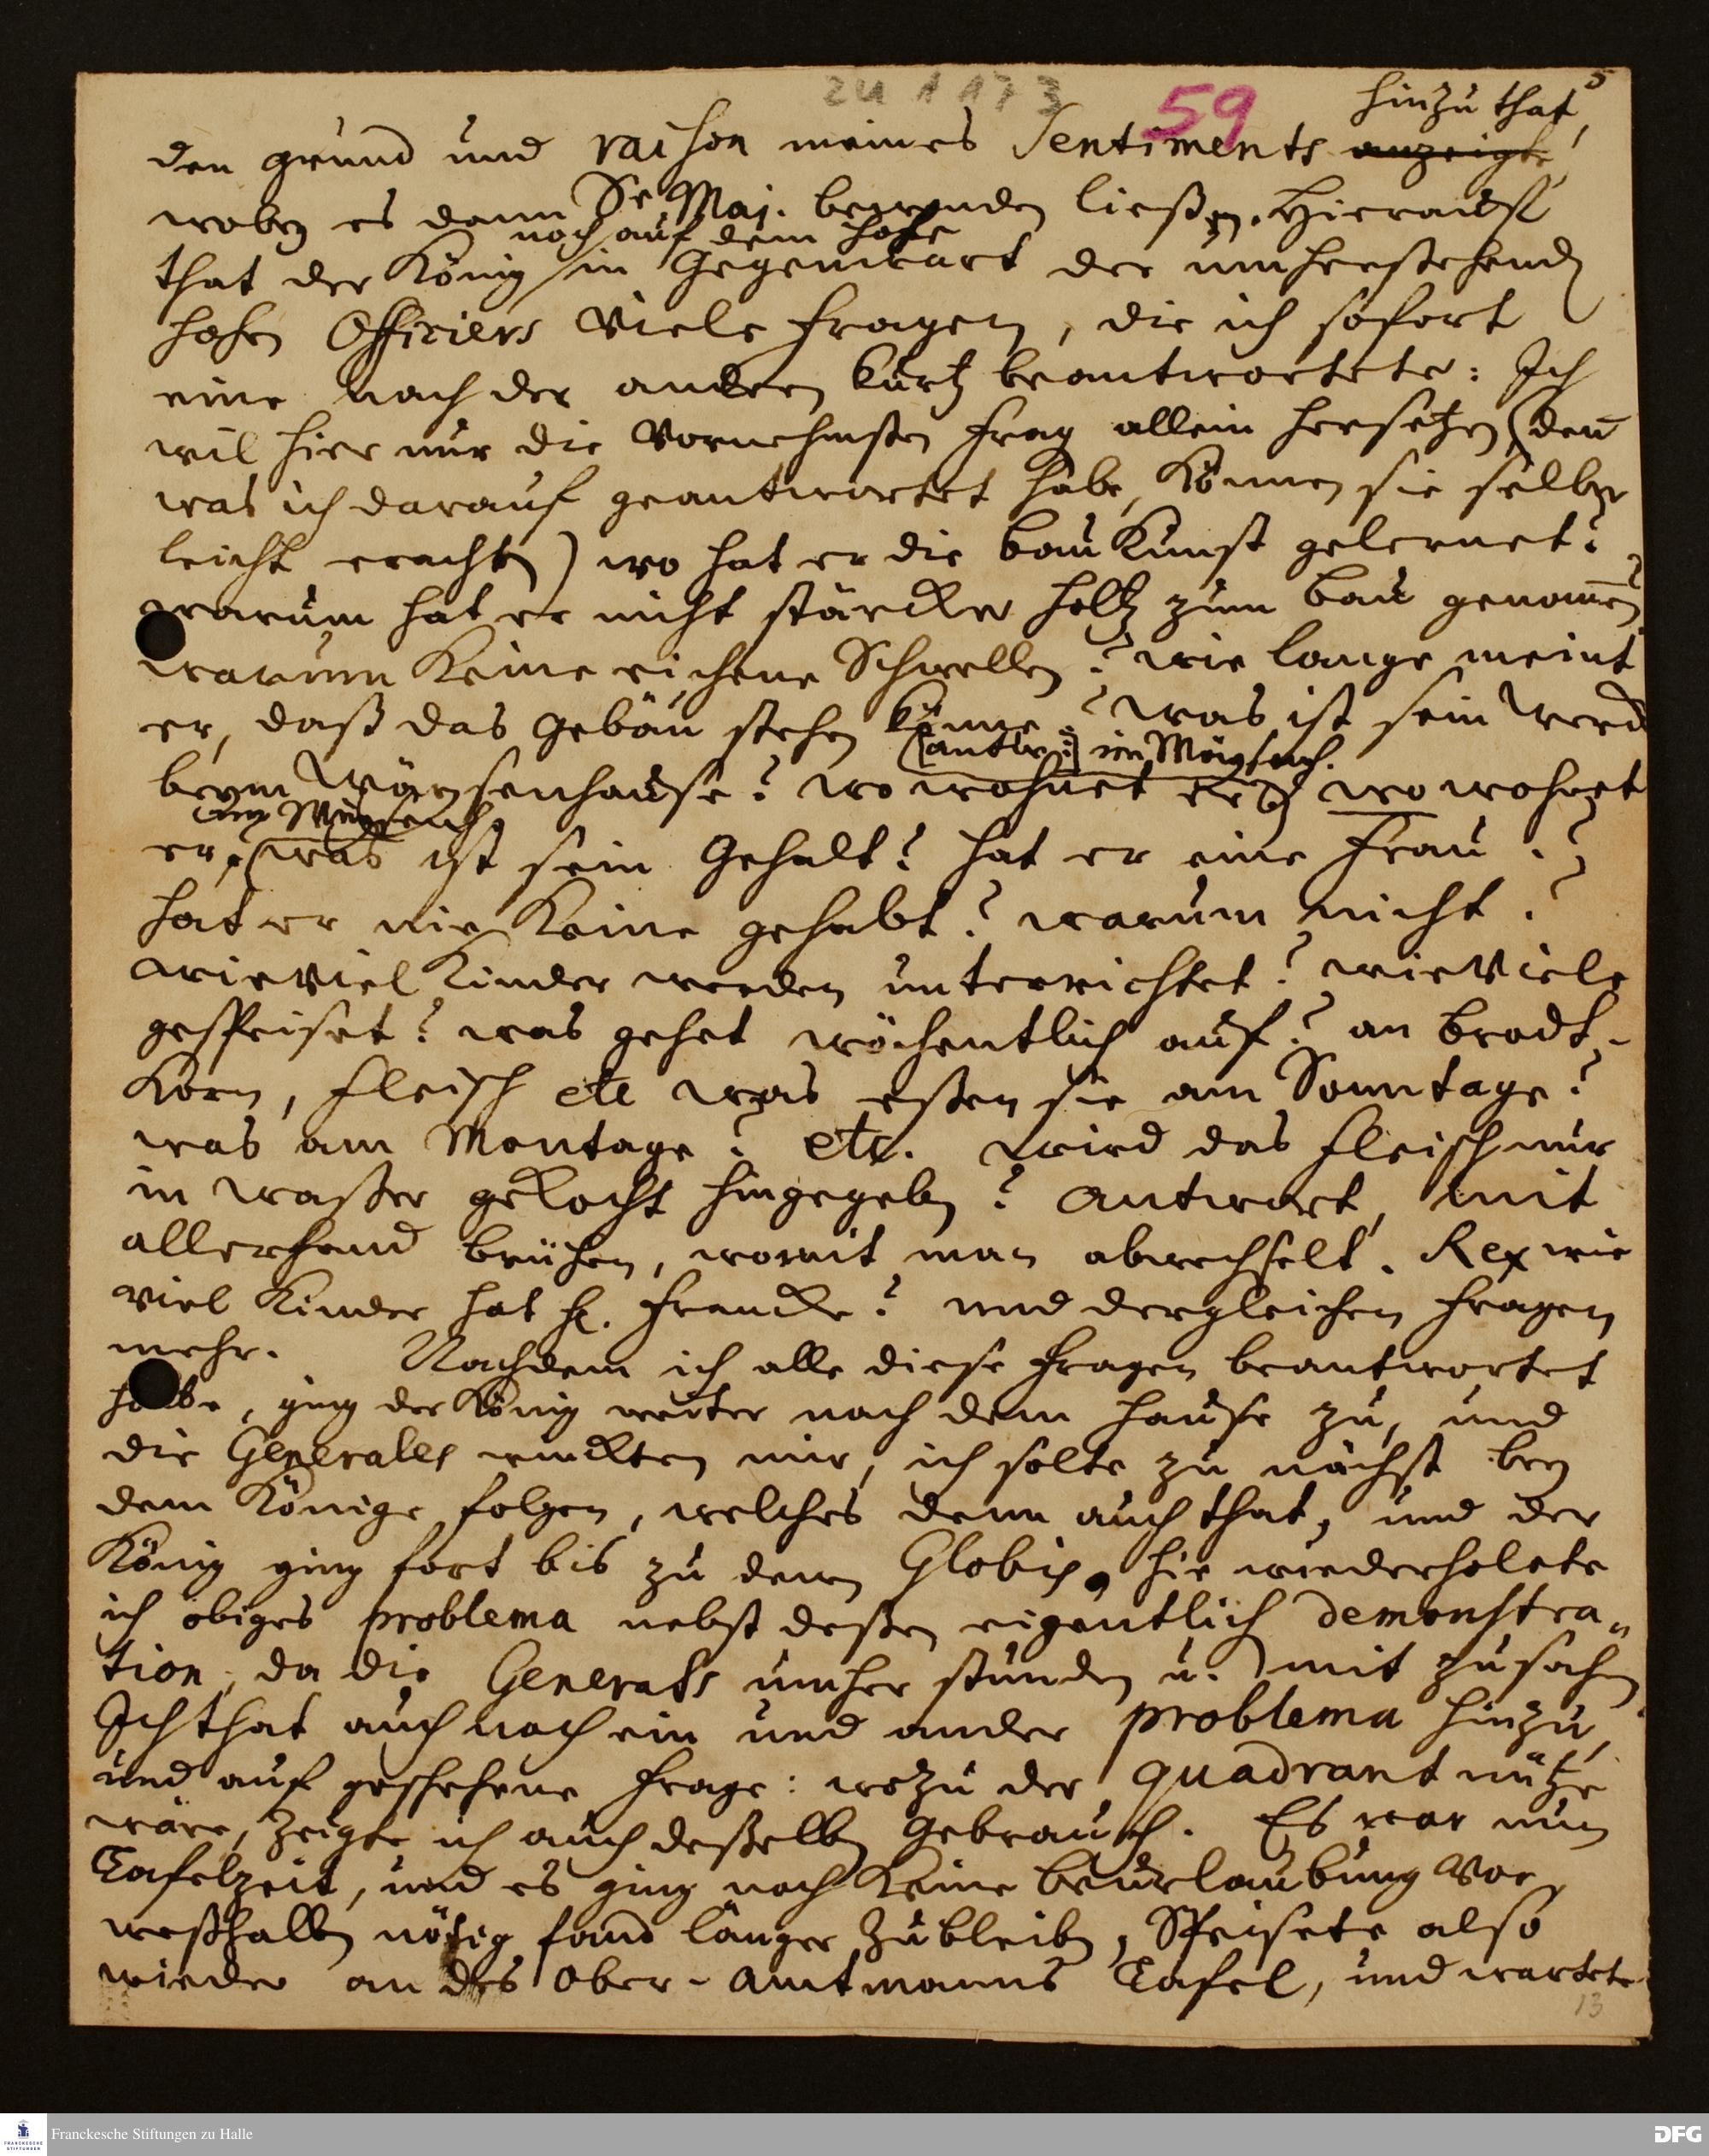 zu 1 173
59
5
hinzu that,
den grund und raison meines Sentiments anzeigte,
wobey es dann Se Maj. bewenden ließen. Hierauf
noch auf dem hofe
that der König in Gegenwart der umherstehend
hohen Officiers Viele fragen, die ich sofort
eine nach der andern kurtz beantwortete: Ich
wil hier nur die Vornehmsten frag allein hersetzen (den̄
was ich darauf geantwortet habe, Können sie selber
leicht erachten) wo hat er die bau Kunst gelernet?
warum hat er nicht stärcker holtz zum bau genom̄en?
warum Keine eichene Schwellen? wie lange meint
er, daß das gebäu stehen könne? was ist sein werck
(antw:) im Waysenh.
beym Waysenhause? wo wohnet er? wo wohnet
er? was ist sein Gehalt? hat er eine frau?
hat er nie Keine gehabt? warum nicht?
wieviel Kinder werden unterrichtet? wieviele
gespeiset? was gehet wöchentlich auf? an brodt-
Korn, fleisch etc was eßen sie am Sonntage?
was am Montage? etc. wird das fleisch nur
in waßer gekocht hingegeben? Antwort, mit
allerhand brühen, womit man abwechselt. Rex wie
viel Kinder hat H. francke? und dergleichen fragen
mehr. Nachdem ich alle diese fragen beantwortet
habe, ging der König weiter nach dem hause zu, und
die Generales winckten mir, ich solte zu nächst bey
dem Könige folgen, welches denn auch that, und der
König ging fort bis zu denen Globis, hie wiederholete
ich obiges problema nebst deßen eigentlich demonstra„
tion, da die Generals umher stunden u. mit zusahen
Ich that auch noch ein und ander problema hinzu,
und auf geschehene frage: wozu der quadrant nütze
wäre, zeigte ich auch deßelben Gebrauch. Es war nun
Tafelzeit, und es ging noch Keine beurlaubung Vor,
weßhalben nötig fand länger zu bleiben, Speisete also
wieder an des Ober-Amtmanns Tafel, und wartete
13
Franckesche Stiftungen zu Halle
FRANCKESCHE STIFTUNGEN
DFG